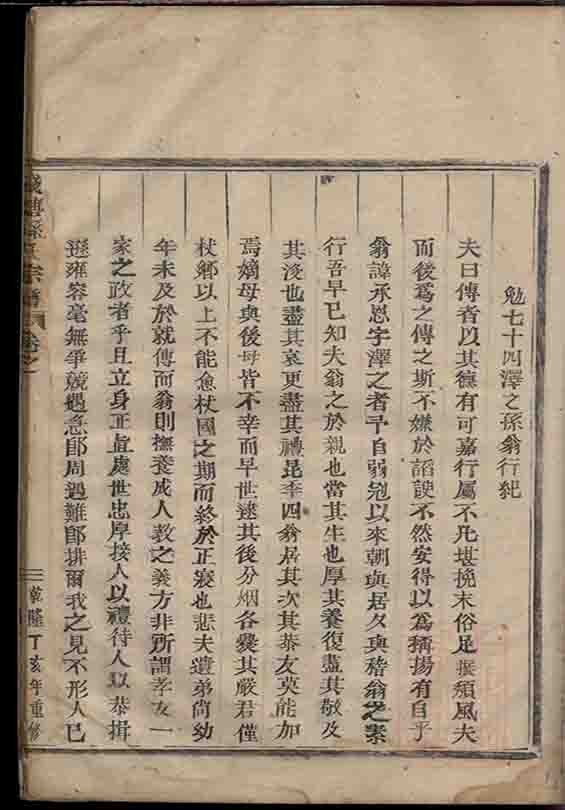 勉七十四澤之孫翁行紀
夫曰傳者以其德有可嘉行屬不凡堪挽末俗足振頹風夫
而後爲之傳之斯不嫌於謟諛不然安得以爲稱揚有自乎
翁諱承恩字澤之者予自弱冠以來朝與居夕與稽翁之素
行吾早已知夫翁之於親也當其生也厚其養復盡其敬及
其沒也盡其哀更盡其禮昆季四翁居其次其恭友莫能加
焉嫡母與後母皆不幸而早世逮其後分烟各爨其嚴君僅
杖鄉以上不能僉杖國之期而終於正寢也悲夫遺弟尙幼
年未及於就傳而翁則撫養成人敎之義方非所謂孝友一
家之政者乎且立身正直處世忠厚接人以禮待人以恭揖
遜雍容毫無爭競遇急卽周遇難卽排爾我之見不形人己
孫氏宗譜 卷之一
乾隆丁亥年重修